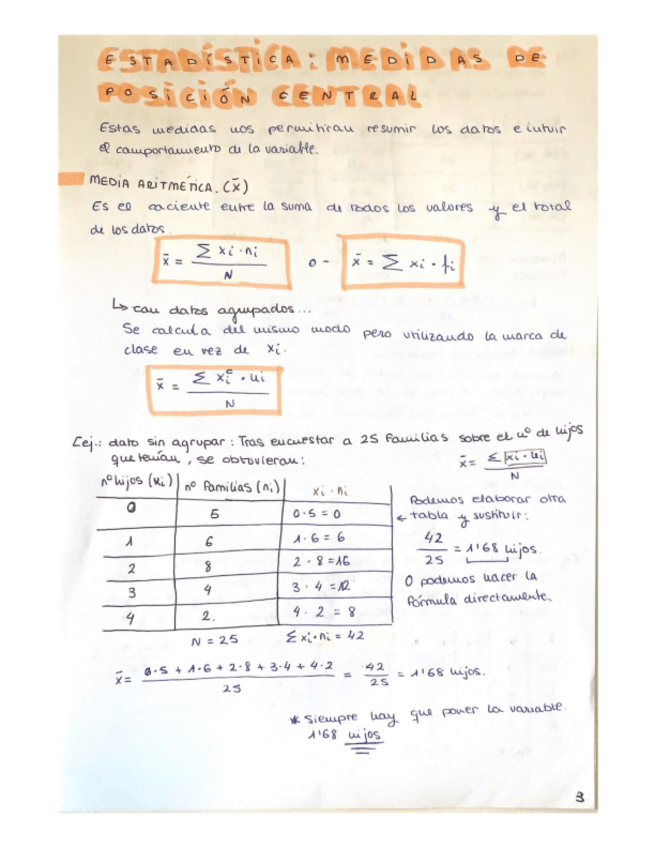 ESTADÍSTICA: MEDIDAS DE
POSICIÓN CENTRAL
Estas medidas nos permitirán resumir los datos e intuir
el comportamiento de la variable.
MEDIA ARITMÉTICA. (x̄)
Es el cociente entre la suma de todos los valores y el total
de los datos.
x̄ = Σ xi · ni / N o - x̄ = Σ xi · fi
↳ con datos agrupados...
Se calcula del mismo modo pero utilizando la marca de
clase en vez de xi.
x̄ = Σ xiᶜ · ni / N
[ej.: dato sin agrupar: Tras encuestar a 25 familias sobre el nº de hijos
que tenían, se obtuvieron:
x̄ = Σ xi · ni / N
nº hijos (xi) | nº Familias (ni) | xi · ni
0 | 5 | 0·5 = 0
1 | 6 | 1·6 = 6
2 | 8 | 2·8 = 16
3 | 4 | 3·4 = 12
4 | 2. | 4·2 = 8
N = 25 Σ xi·ni = 42
Podemos elaborar otra
← tabla y sustituir:
42/25 = 1'68 hijos.
O podemos hacer la
fórmula directamente.
x̄ = 0·5 + 1·6 + 2·8 + 3·4 + 4·2 / 25 = 42/25 = 1'68 hijos.
* Siempre hay que poner la variable.
1'68 hijos
3